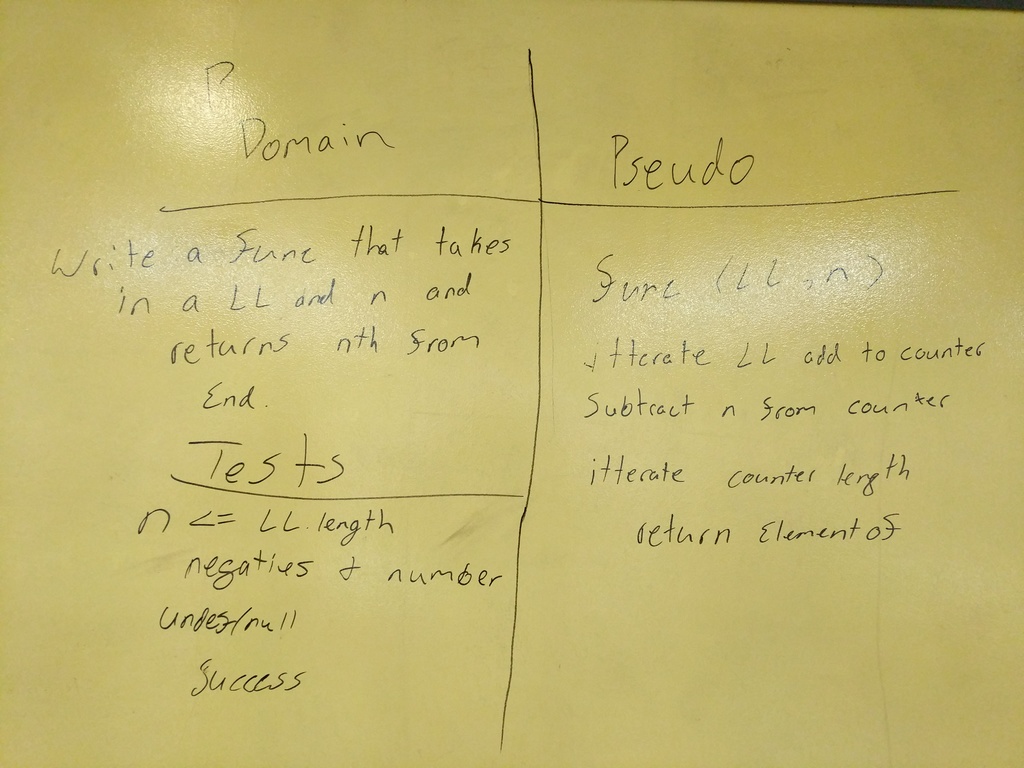 P
Domain
Write a func that takes
in a LL and n and
returns nth from
End.
Tests
n <= LL.length
negatives & number
undef/null
Success
Pseudo
func (LL, n)
itterate LL add to counter
Subtract n from counter
itterate counter length
return Element of